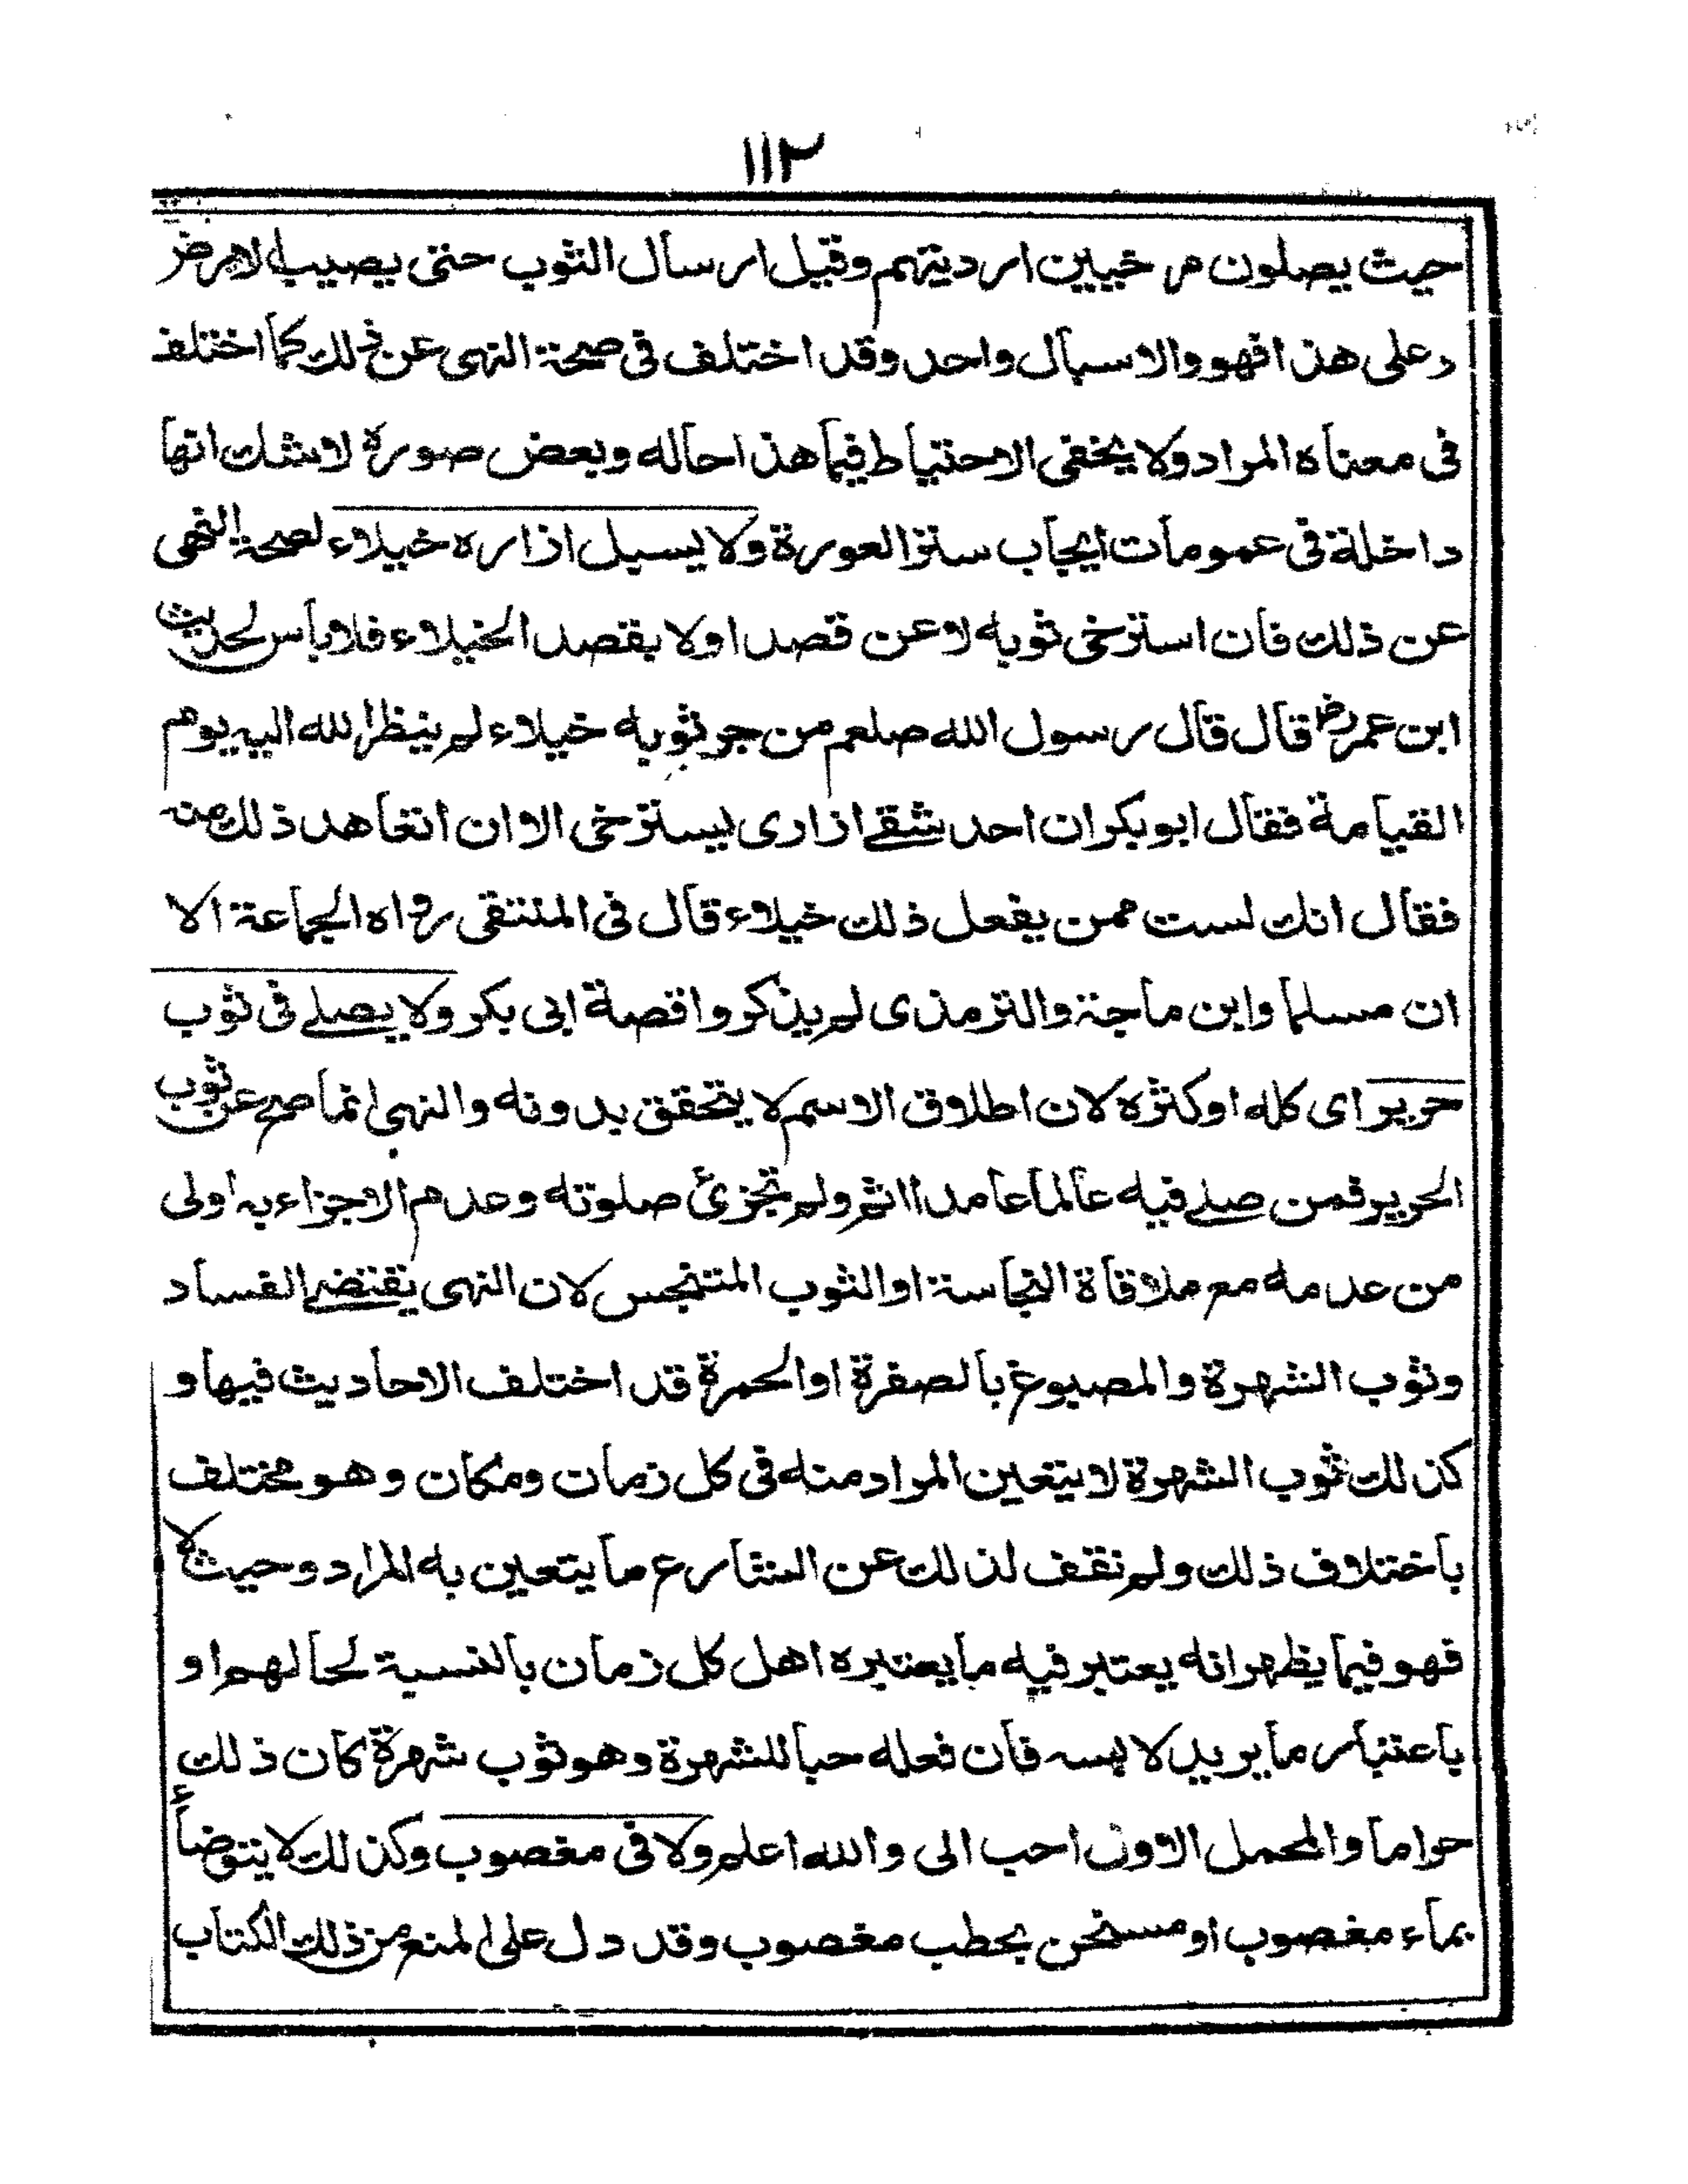 ١١٢
حيث يصلون مرخيين ارديتهم وقيل ارسال الثوب حتى يصيب الارض
وعلى هذا فهو والاسبال واحد وقد اختلف فى صحة النهى عن ذلك كما اختلف
فى معناه المراد ولا يخفى الاحتياط فيما هذا حاله وبعض صورة لا شك انها
داخلة فى عمومات ايجاب ستر العورة ولا يسبل ازاره خيلاء لصحة النهى
عن ذلك فان استرخى ثوبه لا عن قصد او لا بقصد الخيلاء فلا بأس لحديث
ابن عمر رض قال قال رسول الله صلعم من جر ثوبه خيلاء لم ينظر الله اليه يوم
القيامة فقال ابو بكر ان احد شقے ازارى يسترخى الا ان اتعاهد ذلك منه
فقال انك لست ممن يفعل ذلك خيلاء قال فى المنتقى رواه الجماعة الا
ان مسلما وابن ماجة والترمذى لم يذكروا قصة ابى بكر ولا يصلے فى ثوب
حرير اى كله او كثره لان اطلاق الاسم لا يتحقق بدونه والنهى انما صح عن ثوب
الحرير فمن صلے فيه عالما عامدا اثم ولم تجزئ صلوته وعدم الاجزاء به اولى
من عدمه مع ملاقاة النجاسة او الثوب المتنجس لان النهى يقتضے الفساد
وثوب الشهرة والمصبوغ بالصفرة او الحمرة قد اختلف الاحاديث فيها و
كذلك ثوب الشهرة لا يتعين المراد منه فى كل زمان ومكان وهو مختلف
باختلاف ذلك ولم نقف لذلك عن الشارع ما يتعين به المراد وحيث لا
فهو فيما يظهر انه يعتبر فيه ما يعتبره اهل كل زمان بالنسبة لحالهم او
باعتبار ما يريد لابسه فان فعله حبا للشهرة وهو ثوب شهرة كان ذلك
حراما والمحمل الاول احب الى والله اعلم ولا فى مغصوب وكذلك لا يتوضأ
بماء مغصوب او مسخن بحطب مغصوب وقد دل على المنع من ذلك الكتاب